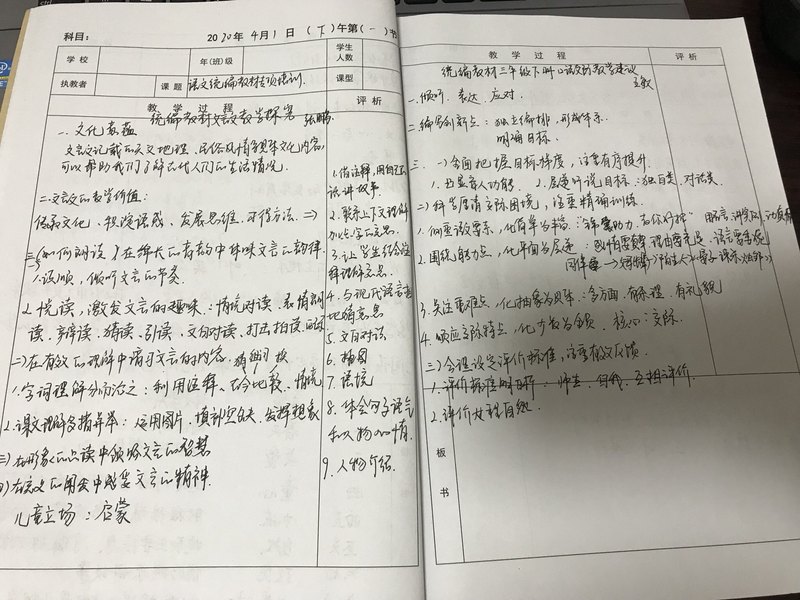 科目： 2020年4月1日（下）午第（一）节
学校 年(班)级 学生人数
执教者 课题 语文统编教材专项培训. 课型
教学过程 评析
统编教材文言文教学探究 张鹏
一. 文化意蕴
文言文记载的天文地理、民俗风情等具体文化内容,
可以帮助我们了解古代人们的生活情况.
二. 文言文的教学价值:
传承文化、积淀语感、发展思维、习得方法.
三、(如何朗读) 在绵长的有韵中体味文言的韵律.
1. 读顺, 倾听文言的节奏
2. 悦读, 激发文言的趣味: 情境对读、表情朗
读、辩读、猜读、引读、文白对读、打击拍读、
(二)在有效的理解中习得文言的内容.
1. 字词理解分而治之: 利用注释、古今比较、情境
2. 课文理解多措并举: 运用图片, 填补空白, 发挥想象
(三) 在形象的品读中领略文言的智慧
(四) 在文言的用去中感受文言的精神.
儿童立场: 启蒙
1. 借注释, 用自己的
话讲故事.
2. 联系上下文理解
加点字的意思.
3. 让学生结合注
释理解意思
4. 与现代语言
比猜意思
5. 文白对话
6. 插图
7. 语境
8. 体会句子语气
和人物心情.
9. 人物介绍.
教学过程 评析
统编教材三年级下册口语交际教学建议
一. 倾听、表达、应对.
二. 编写创新点: 独立编排, 形成体系.
明确目标.
三. (一)全面把握目标梯度, 注重有序提升.
1. 凸显育人功能 2. 层递呼说目标: 独白类, 对话类.
(二) 科学厘清交际困境, 注重精确训练
1. 何重激要素, 化简单为丰富:
2. 围绕能力点, 化平面为层递:
3. 关注重难点, 化抽象为具体: 多方面, 有条理, 有礼貌
4. 顺应交际特点, 化分散为全员. 核心: 交际.
(三) 合理设定评价标准, 注重有效反馈.
1. 评价标准明晰: 师生、自我、互相评价.
2. 评价
板书